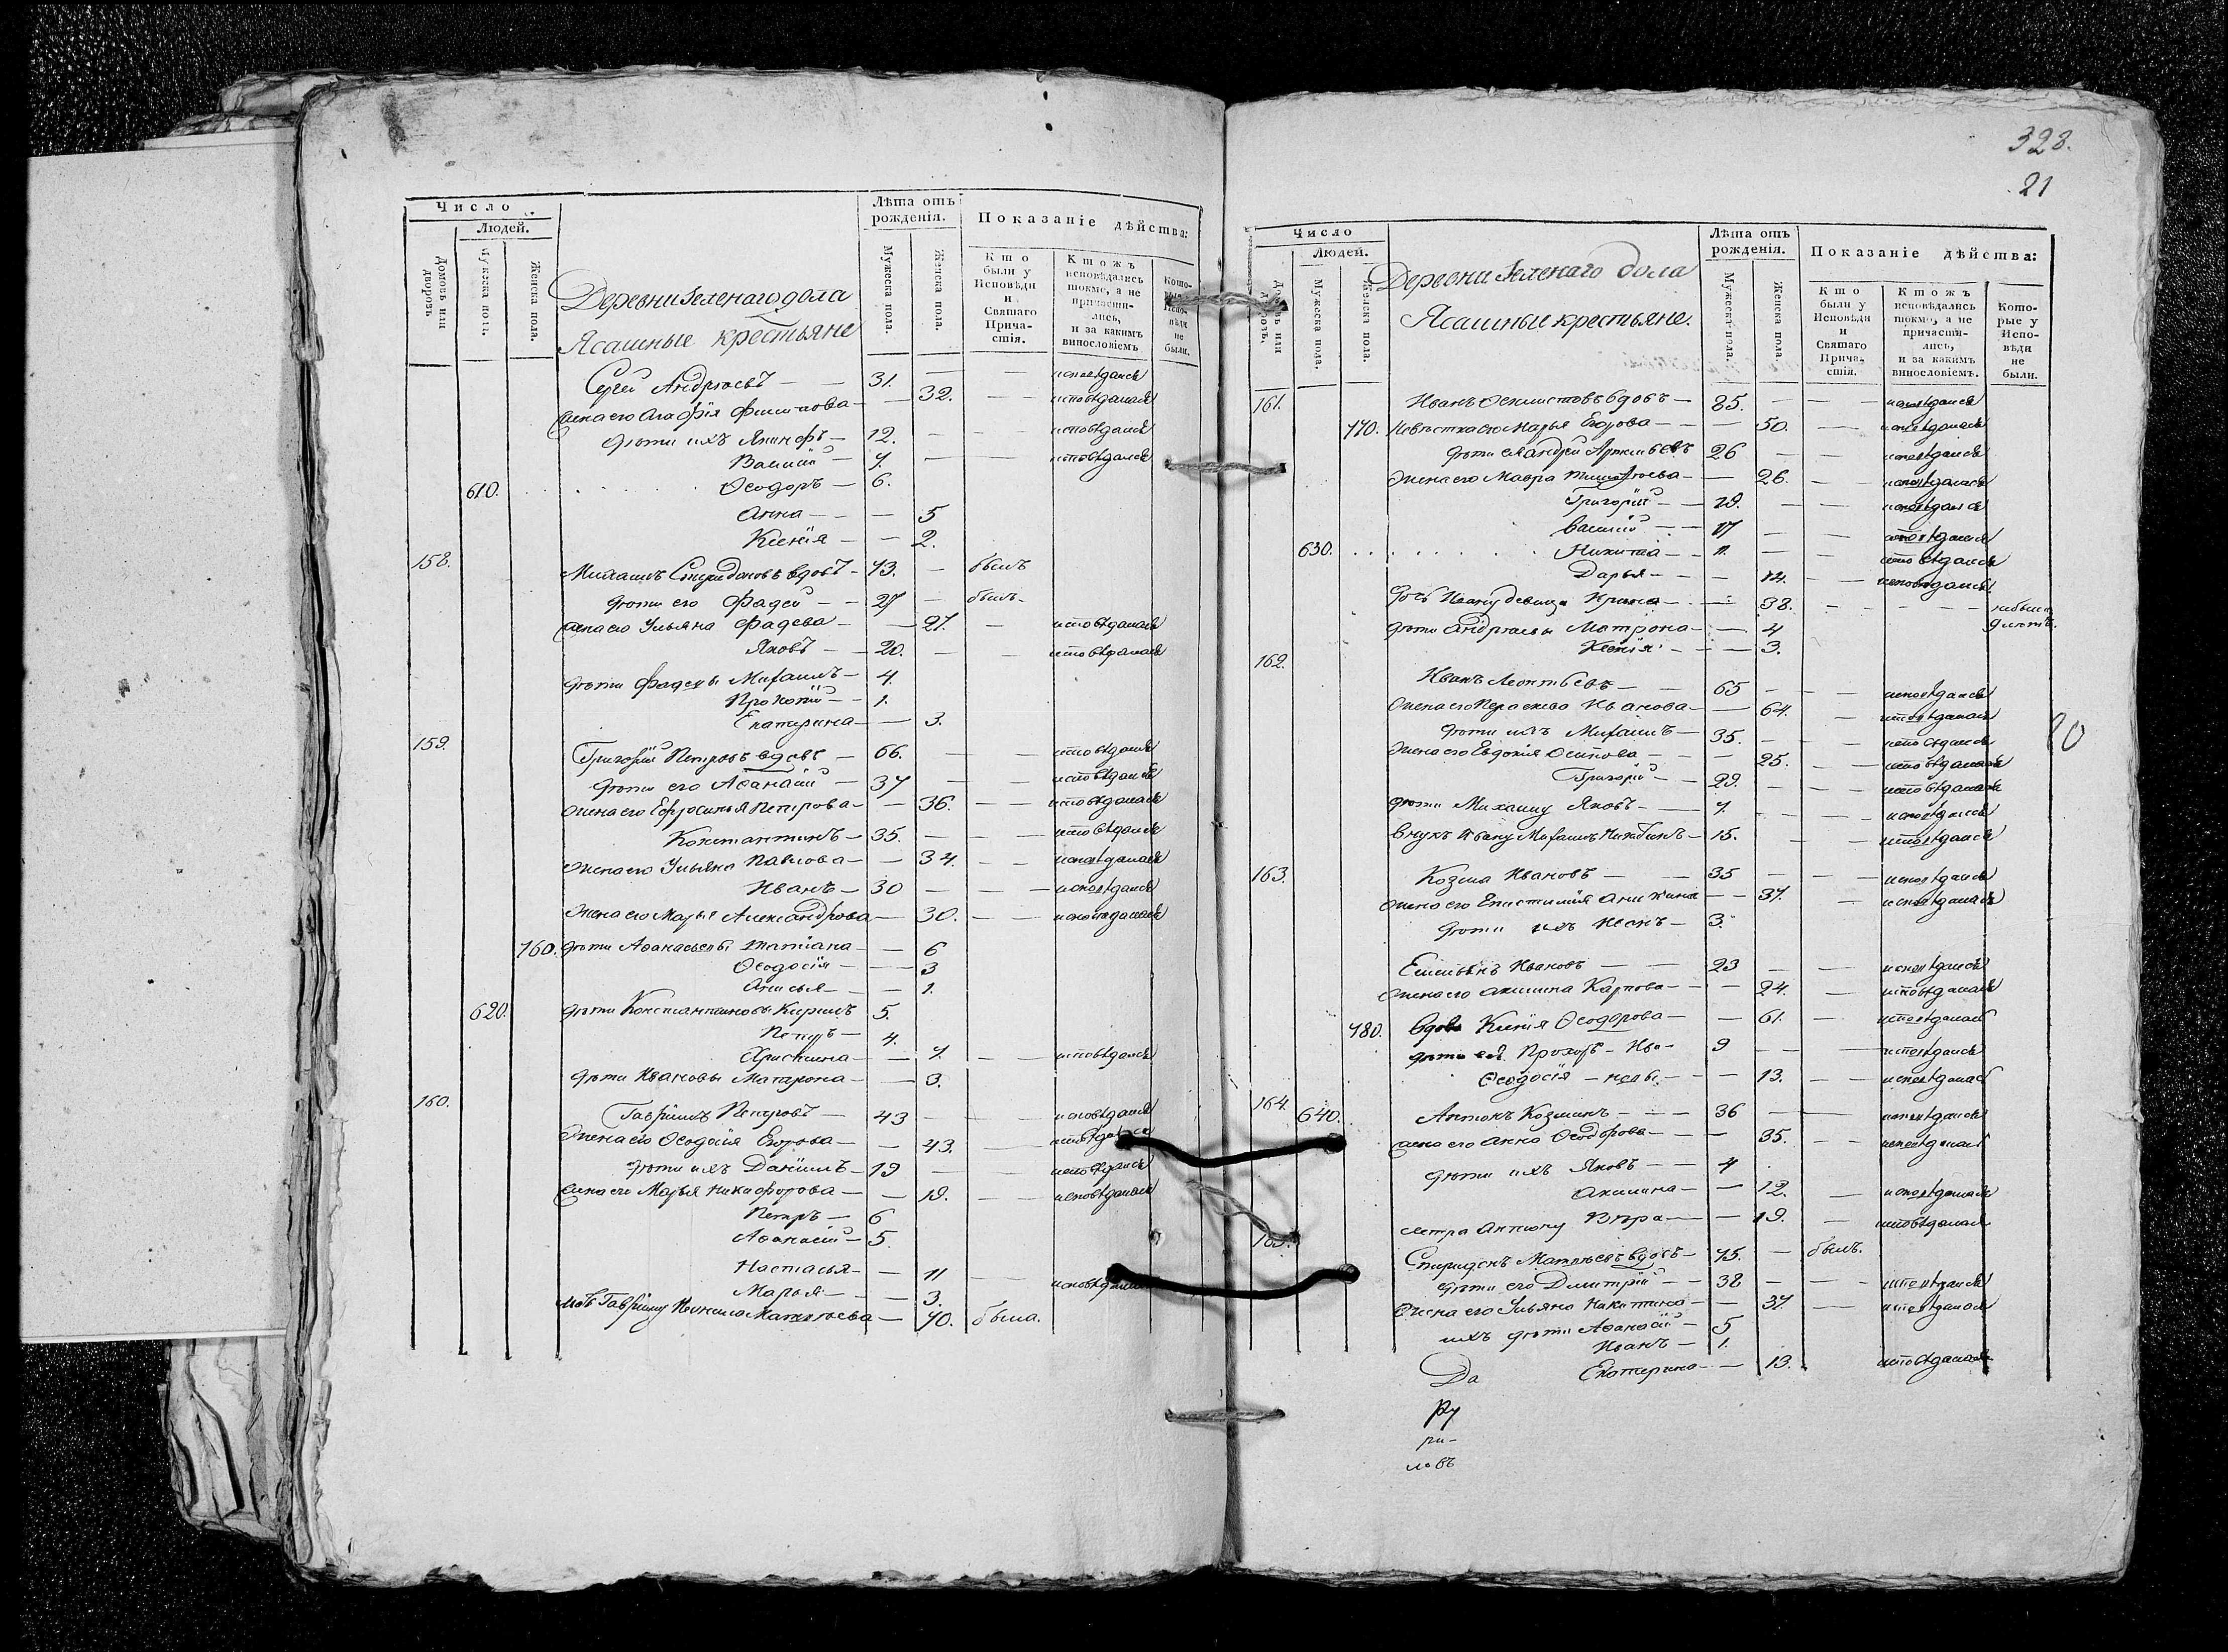 Число
Людей.
Домовъ или дворовъ.
Мужеска пола.
Женска пола.
Лѣта отъ рожденія.
Мужеска пола.
Женска пола.
Показаніе дѣйства:
Кто были у Исповѣди и Святаго Причастія.
Ктожъ исповѣдались токмо, а не причастились, и за какимъ винословіемъ
Которые у Исповѣди не были.
Деревни Зеленаго дола
Ясашные крестьяне
Сергей Андреевъ — 31. — исповѣдался
Жена его Агафія Филипова — 32. — исповѣдалася
дѣти ихъ Якинфъ — 12. — исповѣдался
Василій — 7. — исповѣдался
610. Ѳеодоръ — 6.
Анна — 5
Ксенія — 2.
158. Михаилъ Спиридоновъ вдовъ — 73. — былъ
дѣти его Фадей — 27 — былъ
жена его Ульяна Фадеева — 27. — исповѣдалась
Яковъ — 20. — исповѣдался
дѣти Фадеевы Михаилъ — 4.
Прокопій — 1.
Екатерина — 3.
159. Григорій Петровъ вдовъ — 66. — исповѣдался
дѣти его Аѳанасій — 37 — исповѣдался
жена его Ефросинья Петрова — 36. — исповѣдалася
Константинъ — 35. — исповѣдался
жена его Ульяна Павлова — 34. — исповѣдалася
Иванъ — 30 — исповѣдался
жена его Марья Александрова — 30. — исповѣдалася
760. дѣти Аѳанасьевы Татіана — 6
Ѳеодосія — 3
Анисья — 1.
620. дѣти Константиновы Кирилъ 5.
Петръ — 4.
Христина — 7. — исповѣдалася
дѣти Ивановы Матарона — 3.
160. Гавріилъ Петровъ — 43 — исповѣдался
жена его Ѳеодосія Егорова — 43. — исповѣдалася
дѣти ихъ Даніилъ — 19 — исповѣдался
жена его Марья Никифорова — 19. — исповѣдалася
Петръ — 6
Аѳанасій — 5.
Настасья — 11 — исповѣдалась
Марья — 3.
мать Гавріилу Матвѣева — 70. была.
328.
21
Число
Людей.
Домовъ или дворовъ.
Мужеска пола.
Женска пола.
Лѣта отъ рожденія.
Мужеска пола.
Женска пола.
Показаніе дѣйства:
Кто были у Исповѣди и Святаго Причастія.
Ктожъ исповѣдались токмо, а не причастились, и за какимъ винословіемъ.
Которые у Исповѣди не были.
Деревни Зеленаго дола
Ясашные крестьяне.
161. Иванъ вдовъ — 85. — исповѣдался
770. Невѣстка его Марья Егорова — 50. — исповѣдалася
дѣти ея Андрей Артемьевъ 26 — исповѣдался
жена его Мавра — 26. — исповѣдалася
Григорій — исповѣдался
Василій — 17 — исповѣдался
630. Никита — 11. — исповѣдался
Дарья — 14. — исповѣдалась
дочь Ивану девица Ирина — 38. — небыла
дѣти Андреевы Матрона — 4
Ксенія — 3.
162. Иванъ Леонтьевъ — 65 — исповѣдался
жена его Параскева Иванова — 64. — исповѣдалася
дѣти ихъ Михаилъ — 35. — исповѣдался
жена его Евдокія Осипова — 25. — исповѣдалася
Григорій — исповѣдался
дѣти Михаилу Яковъ — 7. — исповѣдался
внукъ Ивану Михаилъ — 15. — исповѣдался
20
163. Козма Ивановъ — 35 — исповѣдался
жена его Епистимія — 37. — исповѣдалася
дѣти ихъ — 3.
Емельянъ Ивановъ — 23 — исповѣдался
жена его Акилина Карпова — 24. — исповѣдалася
780. вдова Ксенія Ѳеодорова — 61. — исповѣдалась
дѣти ея Прохоръ — Ива- 9 — исповѣдался
Ѳеодосія — новы — 13. — исповѣдалась
164. 640. Антонъ Козминъ — 36 — исповѣдался
жена его Анна Ѳеодорова — 35. — исповѣдалась
дѣти ихъ Яковъ — 4
Акилина — 12. — исповѣдалася
сестра Антону Вѣра — 19. — исповѣдалася
165. Спиридонъ Матвѣевъ вдовъ — 75. — былъ.
дѣти его Димитрій — 38 — исповѣдался
жена его Ульяна Никитина — 37. — исповѣдалася
ихъ дѣти Аѳанасій — 5
Иванъ — 1.
Екатерина — 13. — исповѣдалася
Да
Ру
ри-
ловъ